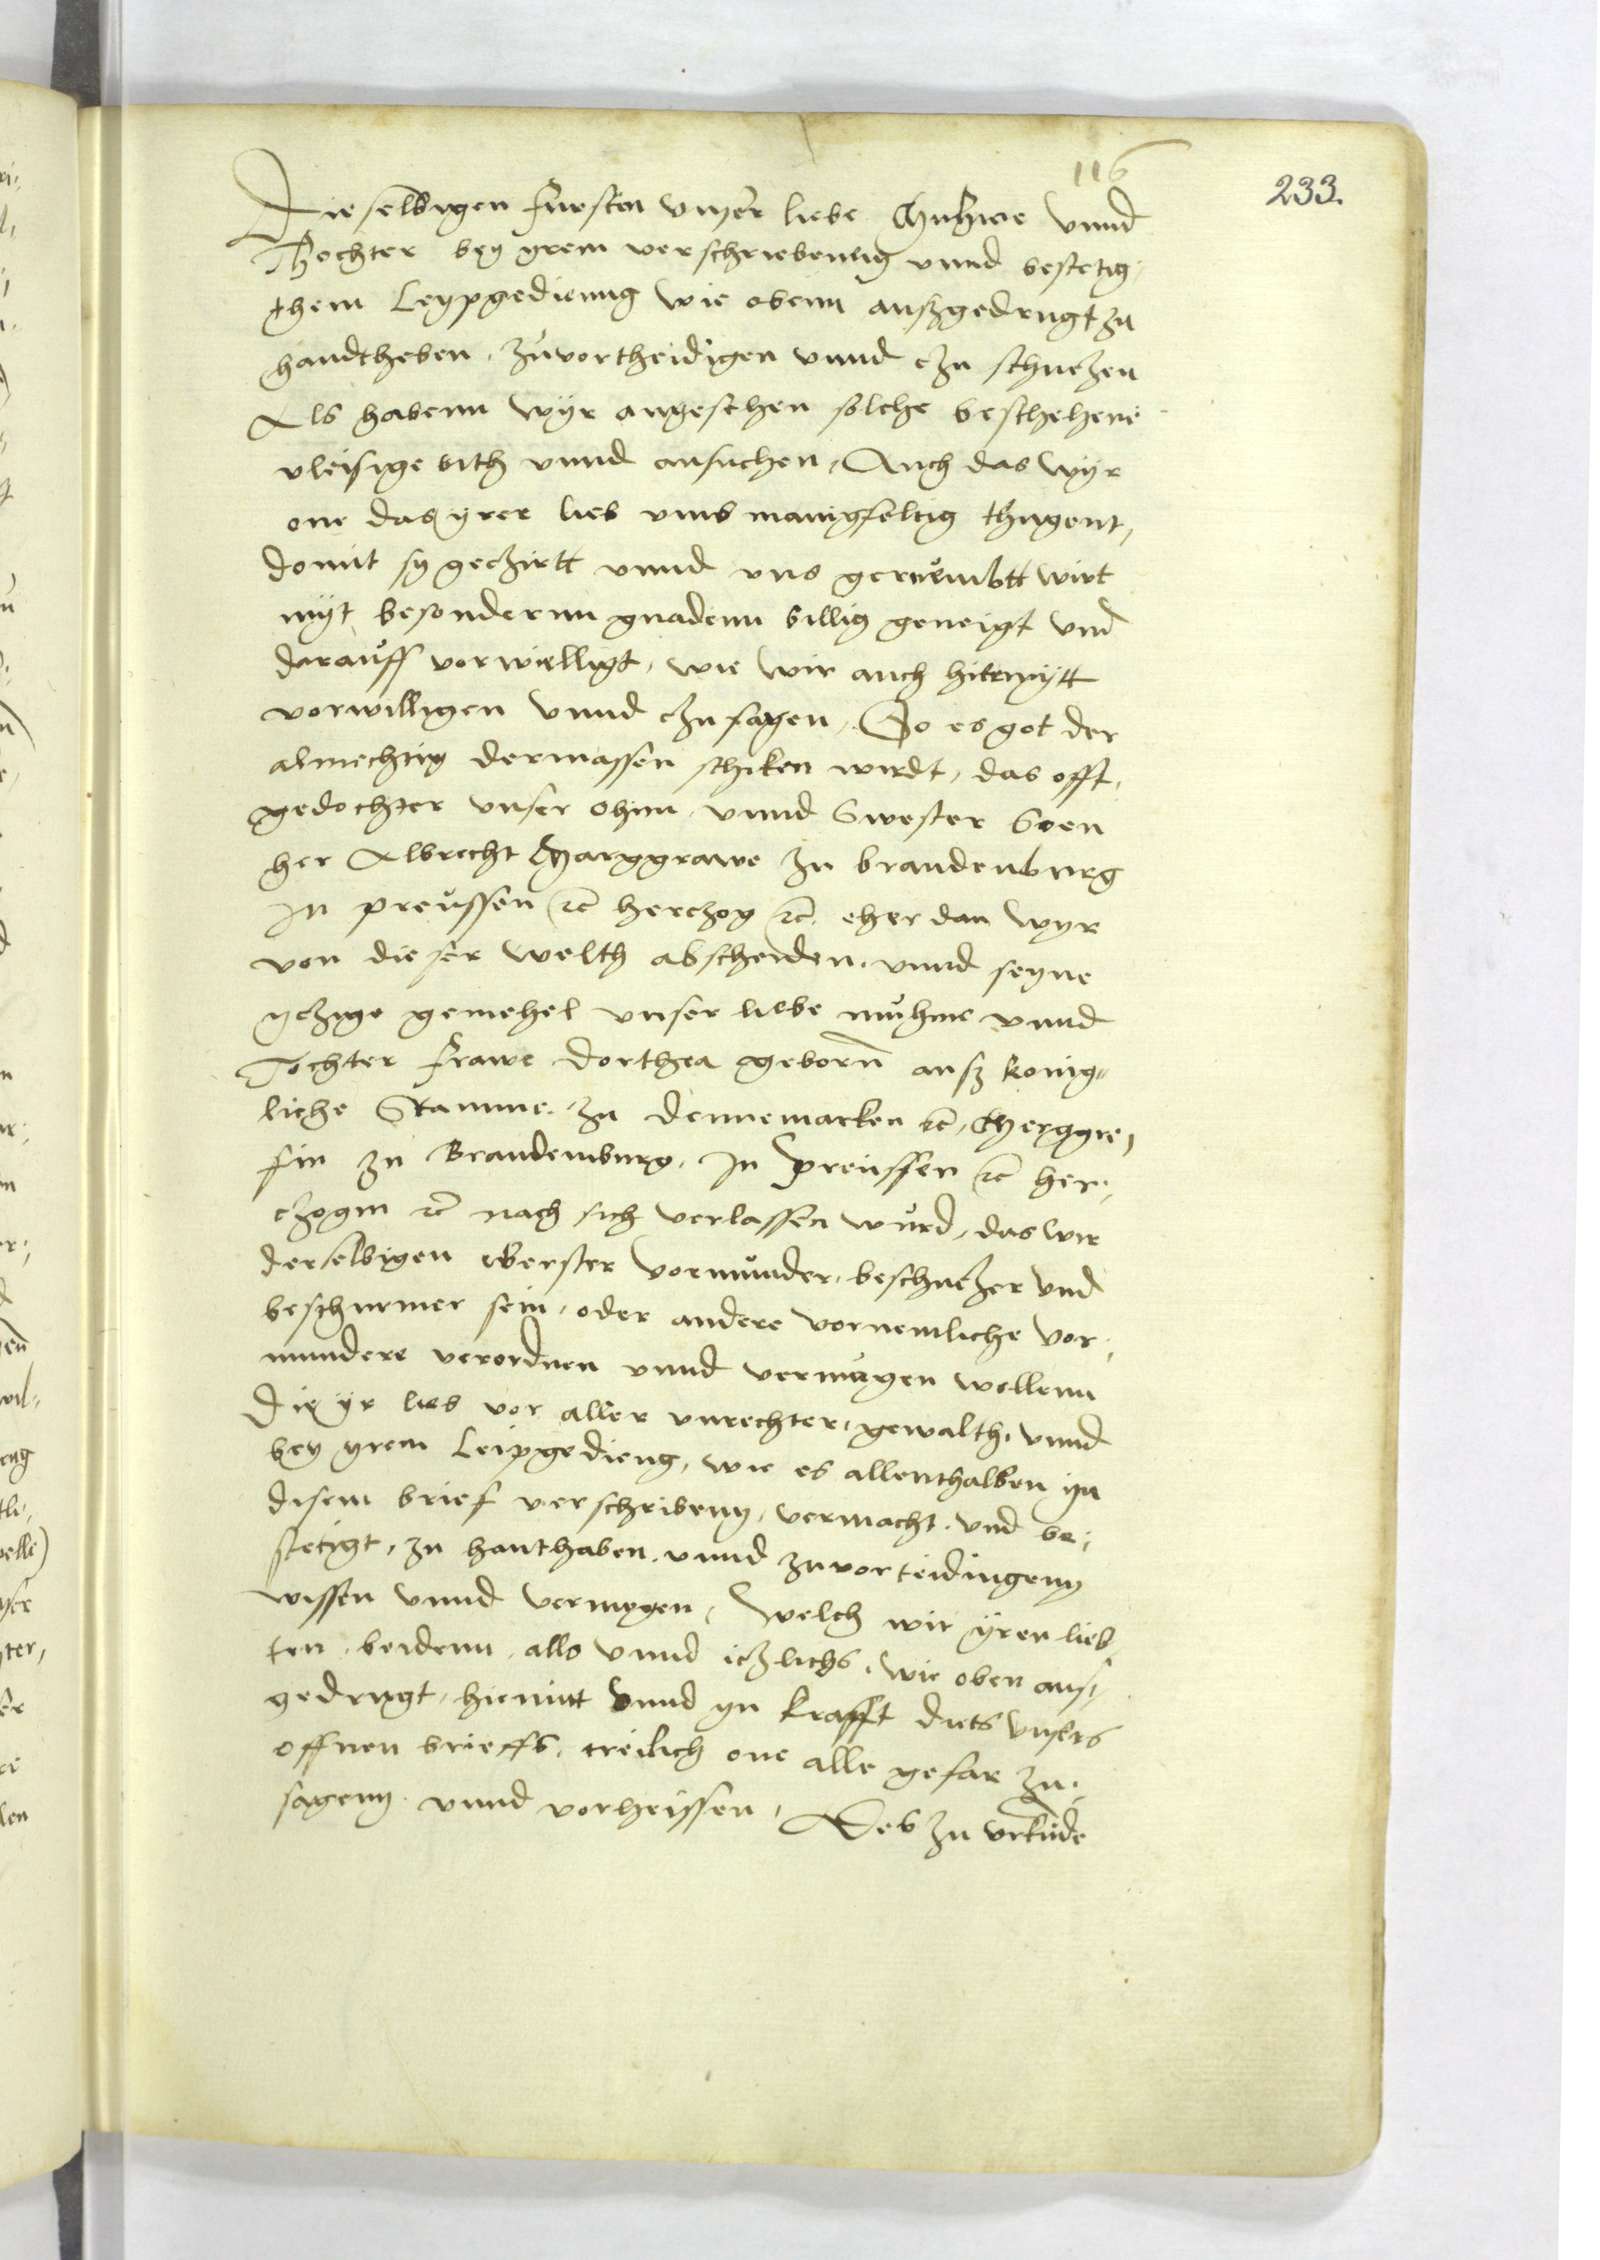 116
233.
Die selbigen fursten vnser liebe Muhme vnnd
Thochter bey yrem verschriebenng vnnd bestetig,
them Leypgedieng wie obenn außgedrugt zu
handtheben, zuvortheidigen vnnd czu schuczen
Als habenn wyr angesehen solche beschehene
vleisige bith vnnd ansuchen, Auch das wyr
one das yrer lieb vmb manigfeltig thugent,
domit sy geczirtt vnnd vns geruembtt wirt
myt besondernn gnadenn billig geneigt vnd
darauff vorwielligt, wie wir auch hiermytt
vorwilligen vnnd czu sagen, So es got der
almechtig dermassen schiken wirdt, das offt,
gedochter vnser ohim vnnd Swester Soen
her Albrecht Marggrawe zu brandenburg
In preussen etc herczog etc. eher dan wyr
von dieser welth abscheiden, vnnd seyne
yczige gemehel vnser liebe muhme vnnd
Tochter frawe dorthea geborn auß konig-
liche Stamme, zu dennemarken etc, Merggre,
fin zu Brandemburg, In Preussen etc her,
czogin etc nach sich verlassen wurd, das wir
derselbigen oberster vormunder, beschuczer vnd
beschurmer sein, oder andere vornemliche vor,
mundere verordnen vnnd vermugen wollenn
die yr lieb vor aller vnrechter, gewalth, vnnd
bey yrem Leipgedieng, wie es allenthalben yn
disem brief verschribeng, vermacht vnd be,
stetigt, zu hanthaben, vnnd zuvorteidingeng
wissen vnnd vermogen, Welch wir yren lieb
ten, beidenn, alls vnnd iczlichs, wie oben auß,
gedrugt, hiemitt vnnd yn krafft diets vnsers
offnen brieffs, treilich one alle gefar zu,
sageng vnnd vorheissen, Deß zu vrkunde